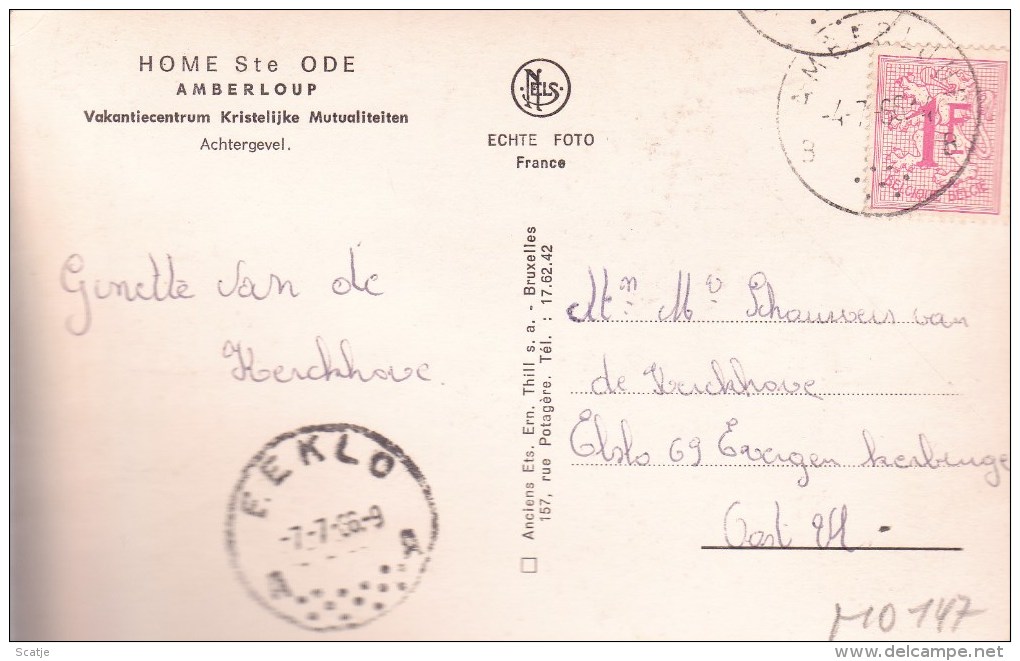 HOME Ste ODE
AMBERLOUP
Vakantiecentrum Kristelijke Mutualiteiten
Achtergevel.
NELS
ECHTE FOTO
France
AMBERLOUP
-4-7-66
B B
1F
BELGIQUE-BELGIË
Ginette van de
Kerckhove.
Anciens Ets. Ern. Thill s. a. - Bruxelles
157, rue Potagère. Tél. : 17.62.42
Mn. Mv Schauweis van
de Kerckhove
Elslo 69 Evergem
Oost Vl -
EEKLO
-7.-7-66-9
MO 147
Scatje
delcampe.net